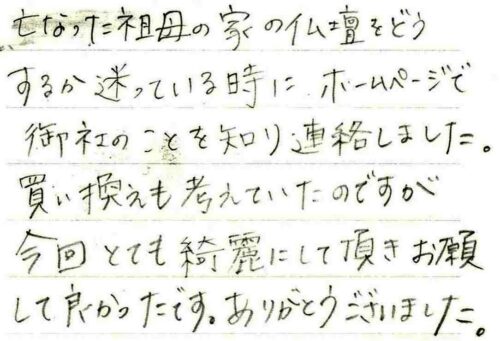 亡なった祖母の家の仏壇をどう
するか迷っている時に ホームページで
御社のことを知り連絡しました。
買い換えも考えていたのですが
今回とても綺麗にして頂きお願
して良かったです。ありがとうございました。